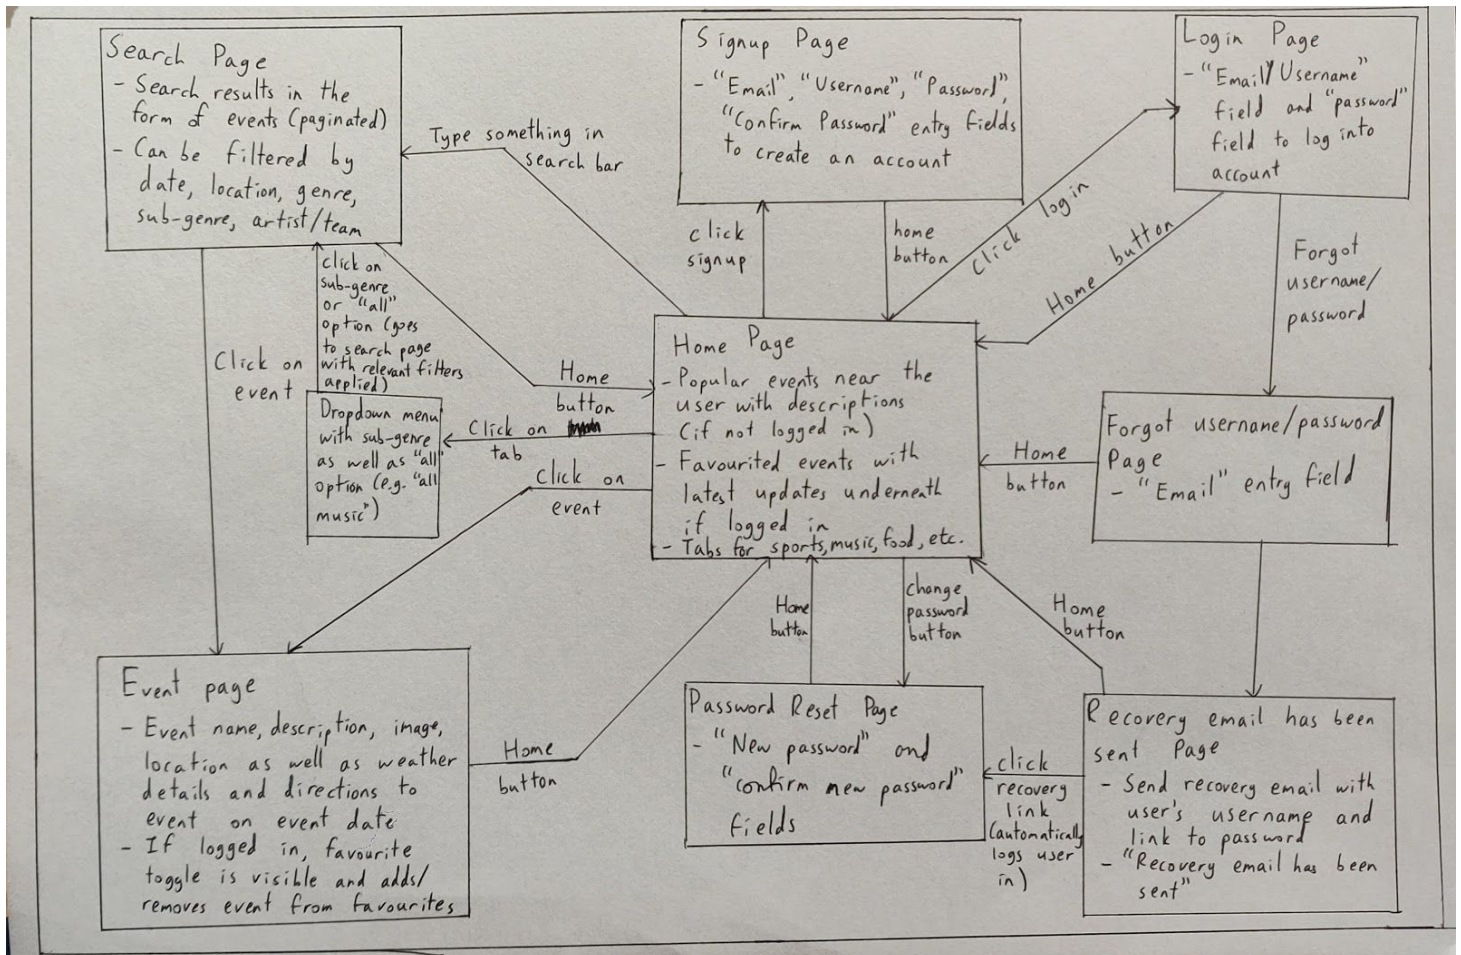 Search Page
- Search results in the
form of events (paginated)
- Can be filtered by
date, location, genre,
sub-genre, artist/team
Type something in
search bar
Signup Page
- "Email", "Username", "Password",
"Confirm Password" entry fields
to create an account
Login Page
- "Email/Username"
field and "password"
field to log into
account
click
signup
home
button
Click login
Home button
Forgot
username/
password
Click on
event
click on
sub-genre
or "all"
option (goes
to search page
with relevant filters
applied)
Home
button
Dropdown menu
with sub-genre
as well as "all"
option (e.g. "all
music")
Click on
tab
Click on
event
Home Page
- Popular events near the
user with descriptions
(if not logged in)
- Favourited events with
latest updates underneath
if logged in
- Tabs for sports, music, food, etc.
Home
button
Forgot username/password
Page
- "Email" entry field
Home
button
change
password
button
Home
button
Event page
- Event name, description, image,
location as well as weather
details and directions to
event on event date
- If logged in, favourite
toggle is visible and adds/
removes event from favourites
Home
button
Password Reset Page
- "New password" and
"confirm new password"
fields
click
recovery
link
(automatically
logs user
in)
Recovery email has been
sent Page
- Send recovery email with
user's username and
link to password
- "Recovery email has been
sent"